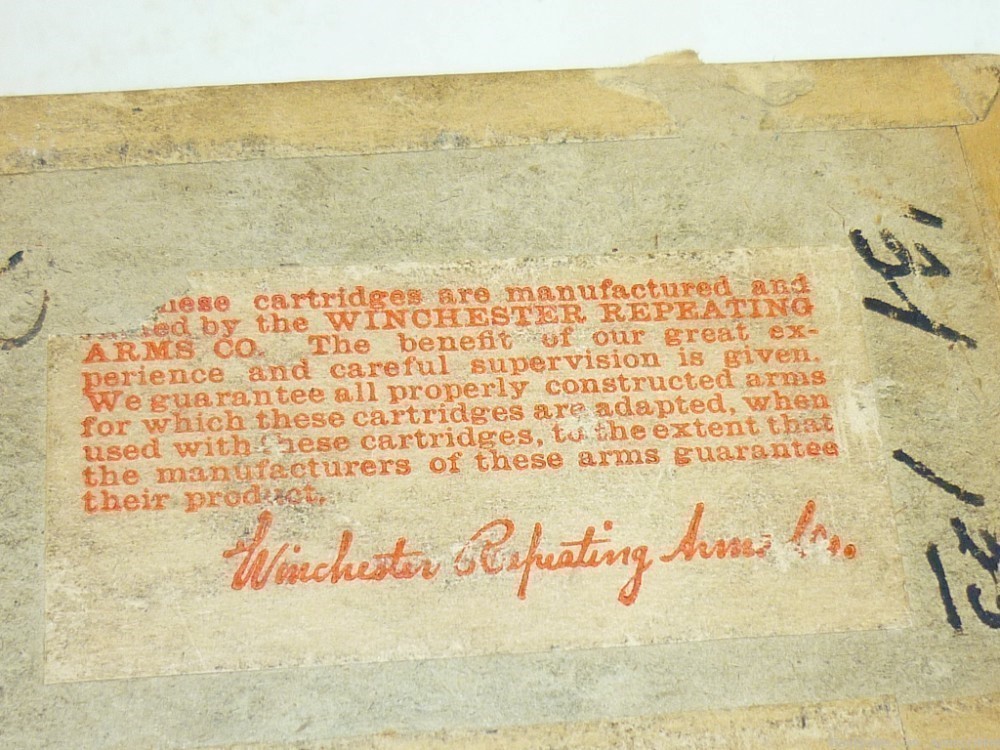 hese cartridges are manufactured and
ed by the WINCHESTER REPEATING
ARMS CO. The benefit of our great ex-
perience and careful supervision is given.
We guarantee all properly constructed arms
for which these cartridges are adapted, when
used with hese cartridges, to the extent that
the manufacturers of these arms guarantee
their product.
Winchester Repeating Arms Co.